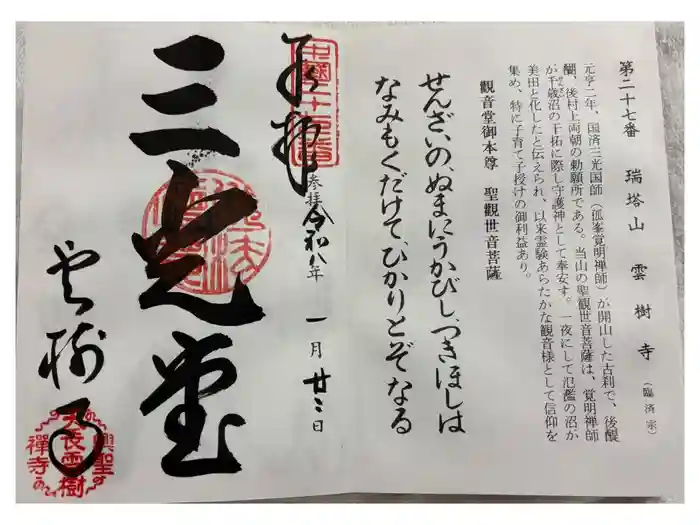 第二十七番 瑞塔山 雲樹寺（臨済宗）
元亨二年、国済三光国師（孤峯覚明禅師）が開山した古刹で、後醍
醐、後村上両朝の勅願所である。当山の聖観世音菩薩は、覚明禅師
が千歳沼の干拓に際し守護神として奉安す。一夜にして氾濫の沼が
美田と化したと伝えられ、以来霊験あらたかな観音様として信仰を
集め、特に子育て子授けの御利益あり。
観音堂御本尊 聖觀世音菩薩
せんざいの、ぬまにうかびし、つきほしは
なみもくだけて、ひかりとぞなる
奉拝
参拝 令和八年 一月廿二日
三光堂
雲樹寺
天長雲樹
興聖
禪寺